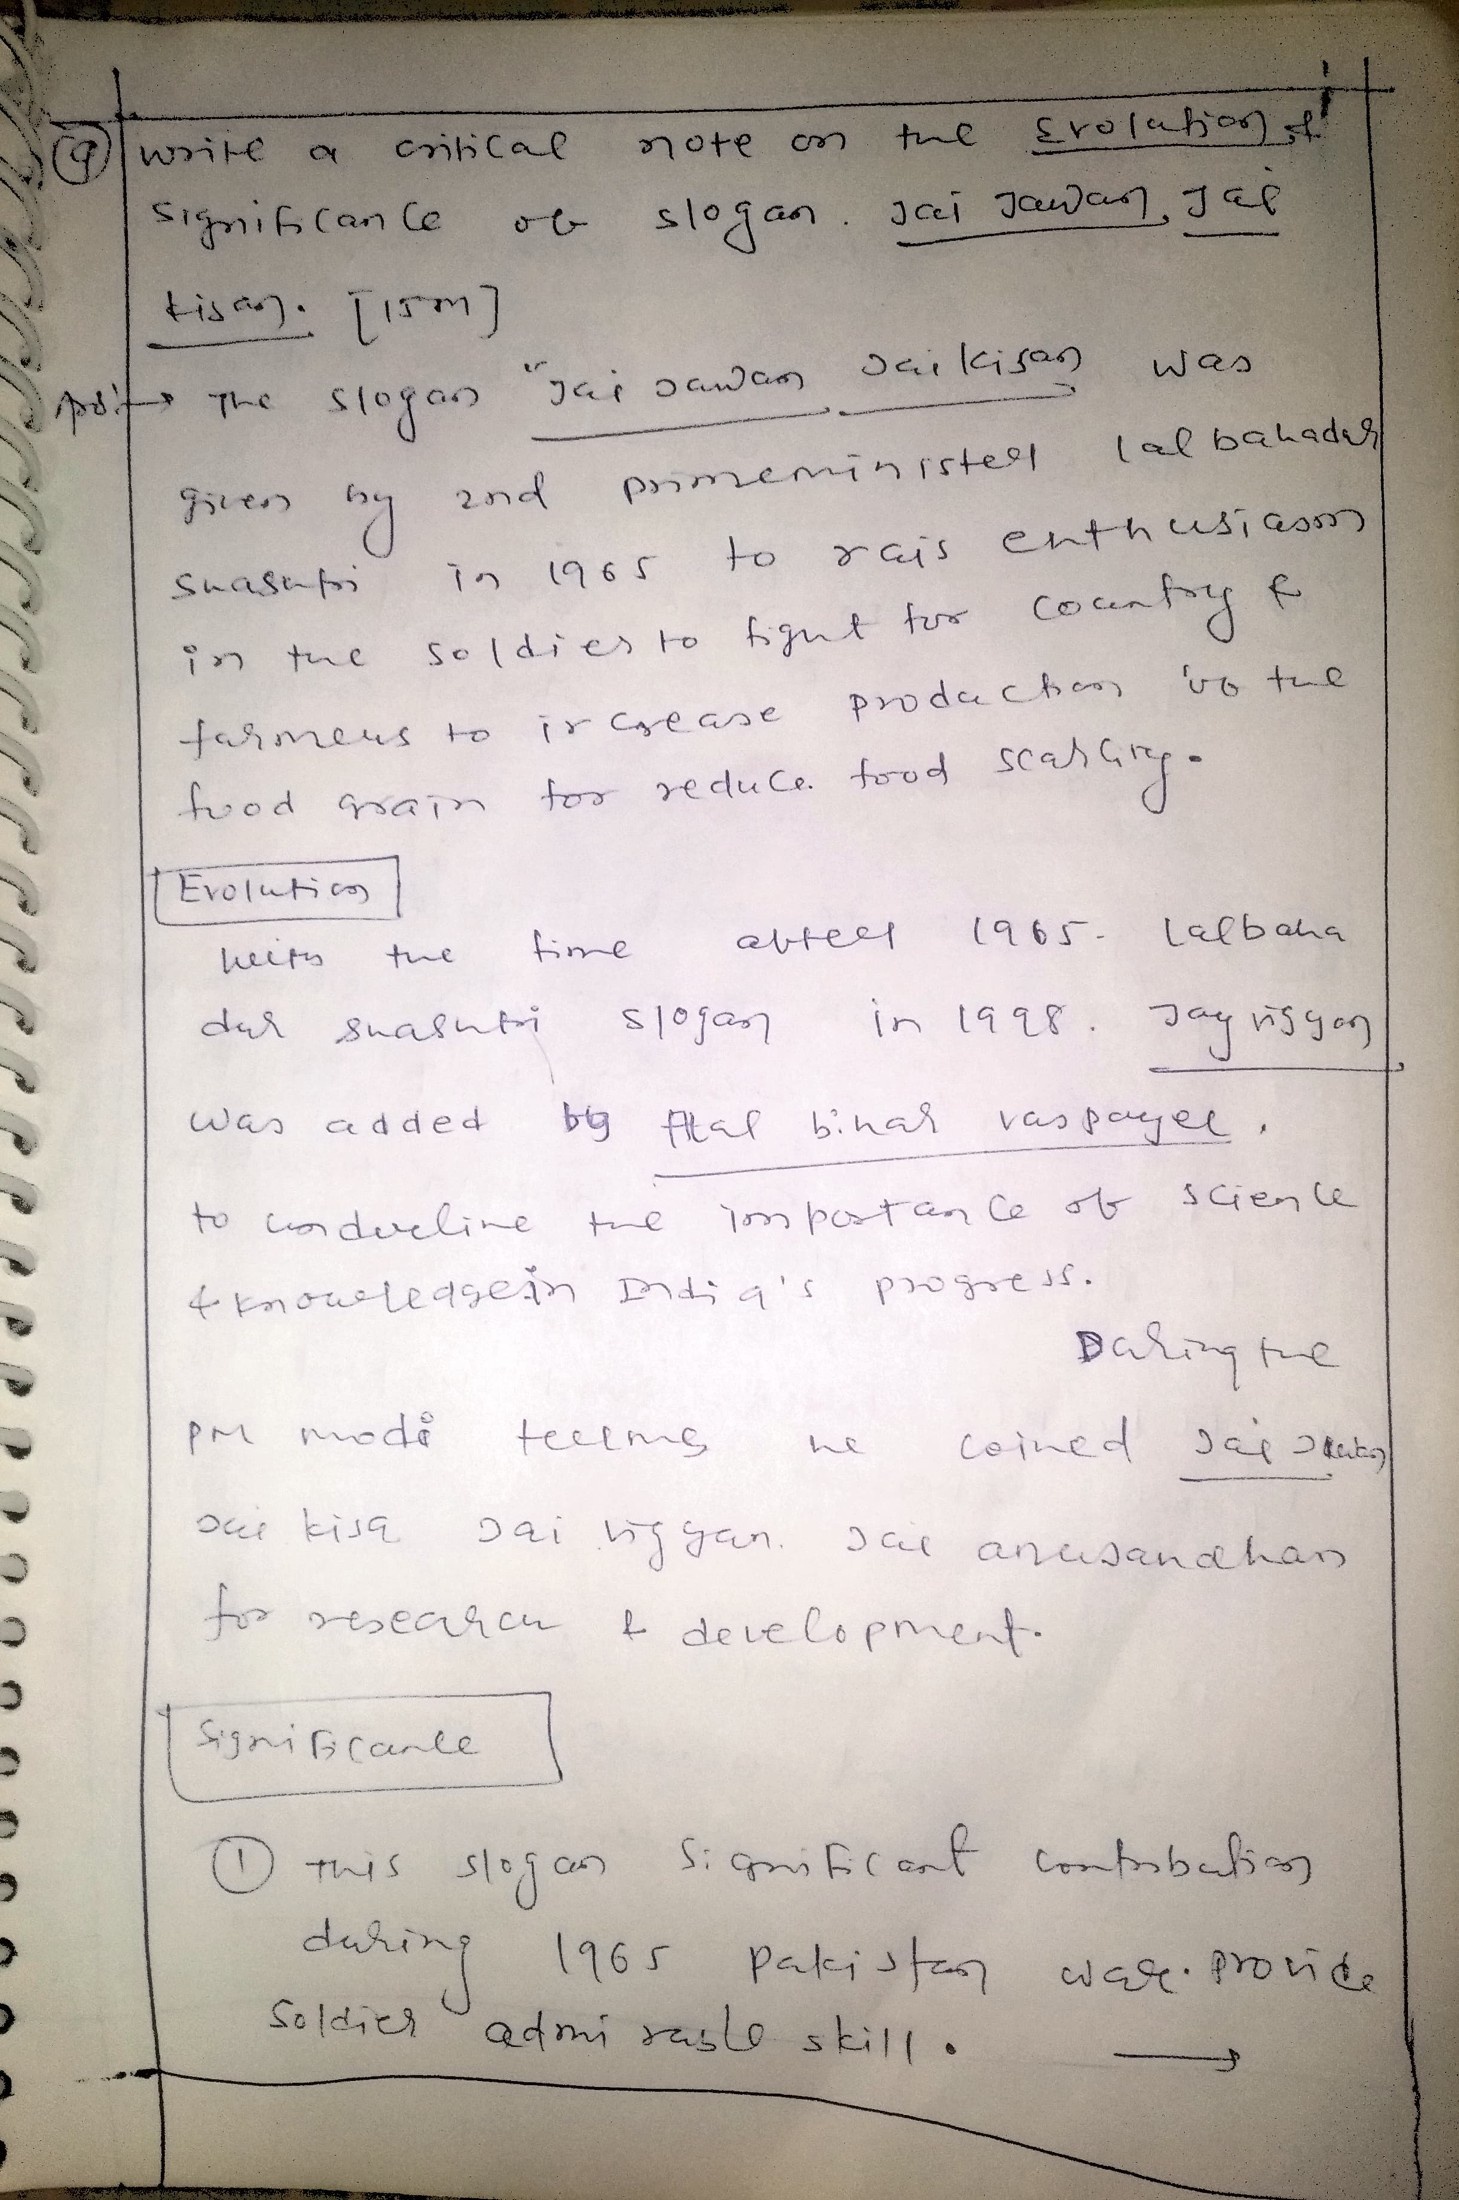 Q write a critical note on the Evolution &
significance of slogan. Jai Jawan, Jai
kisan. [15m]
Ans:→ The slogan "Jai Jawan Jai kisan was
given by 2nd primeminister lal bahadur
shashtri in 1965 to rais enthusiasm
in the soldiers to fight for country &
farmers to increase production in the
food grain for reduce. food scarcity.
Evolution
with the time after 1965. Lalbaha
dur shashtri slogan in 1998. Jay vigyan
was added by Atal bihar vaspayee.
to underline the importance of science
& knowledge in India's progress.
During the
PM modi terms he coined Jai Jawan
Jai kisa Jai vigyan. Jai anusandhan
for research & development.
Significance
① This slogan significant contribution
during 1965 Pakistan war. provide
soldier admirable skill. →